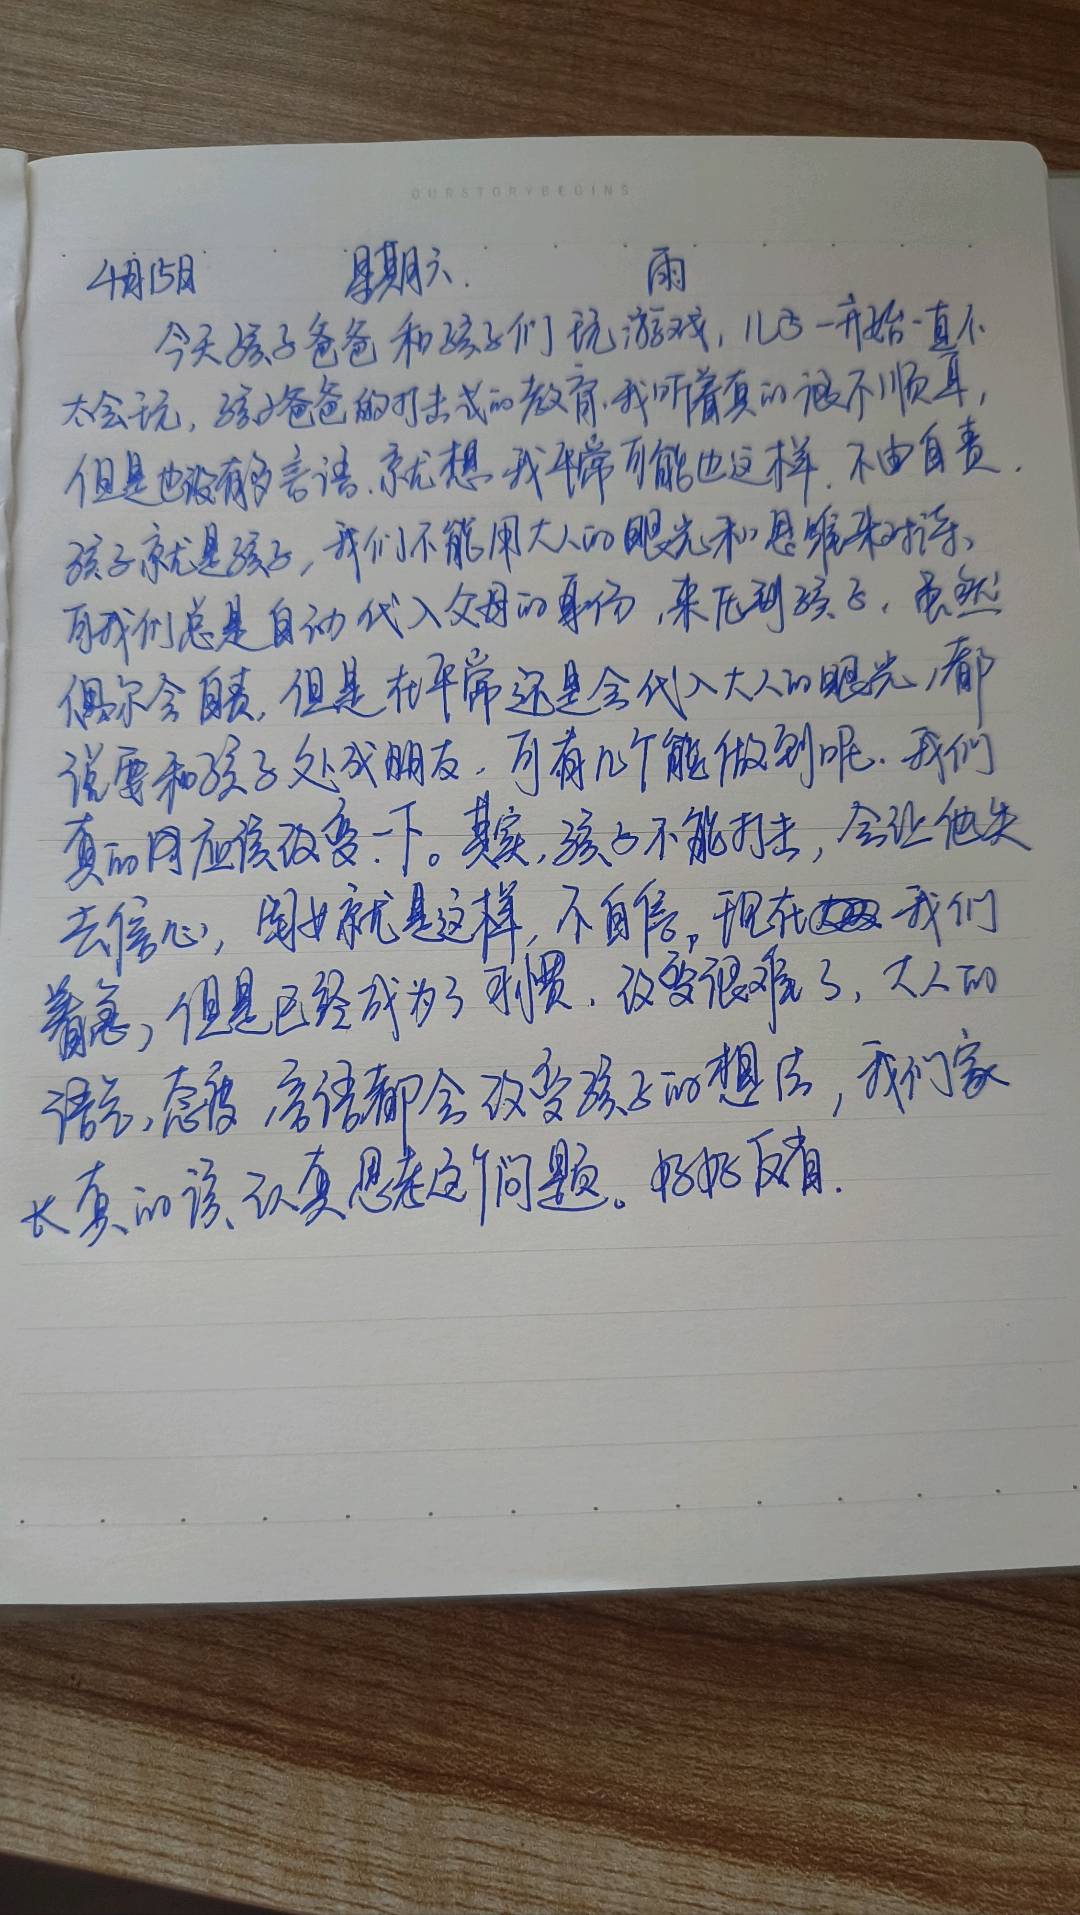 OURSTORYBEGINS
4月15日 星期六. 雨
今天孩子爸爸和孩子们玩游戏,儿子一开始一直不
太会玩,孩子爸爸的打击式的教育.我听着真的很不顺耳,
但是也没有多言语.就想我平常可能也这样.不由自责.
孩子就是孩子,我们不能用大人的眼光和思维来对待、
可我们总是自动代入父母的身份,来压到孩子.虽然
偶尔会自责,但是在平常还是会代入大人的眼光,都
说要和孩子处成朋友.可有几个能做到呢.我们
真的应该改变一下。其实,孩子不能打击,会让他失
去信心,闺女就是这样,不自信,现在我们
着急,但是已经成为了习惯.改变很难了,大人的
语言,态度,言语都会改变孩子的想法,我们家
长真的该认真思考这个问题。好好反省.